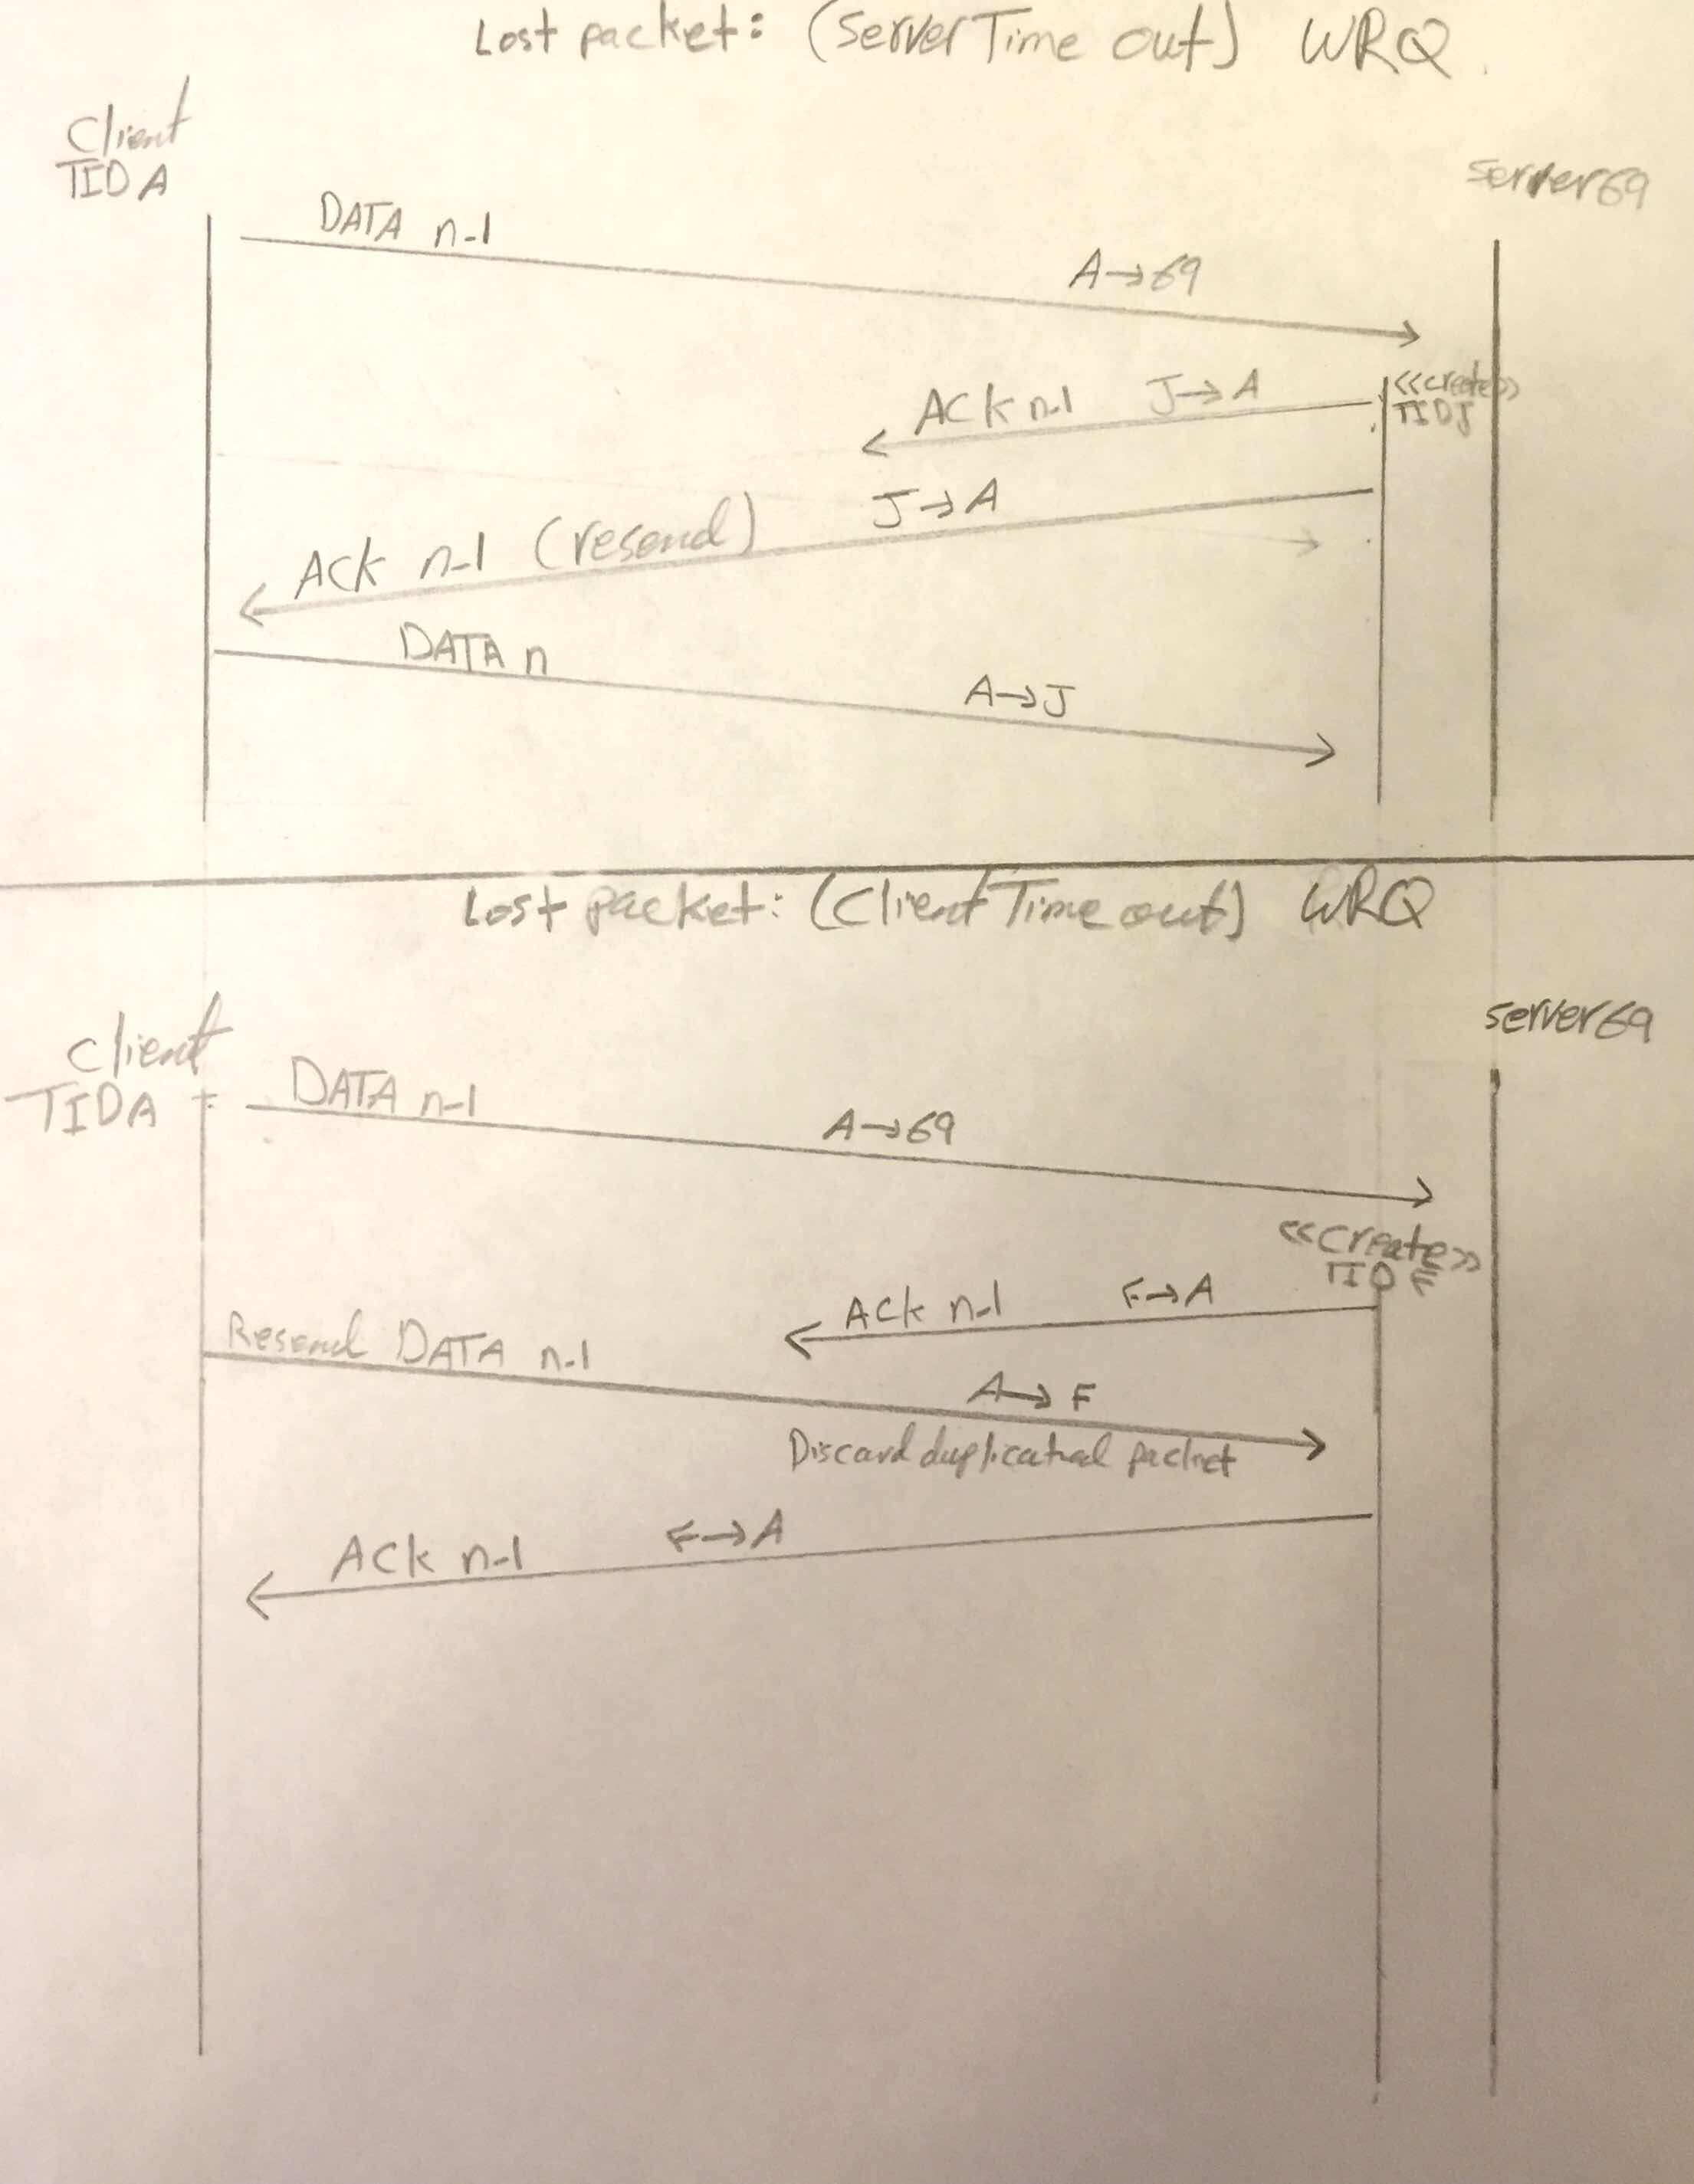 Lost packet: (Server Time out) WRQ
Client
TID A
server 69
DATA n-1
A→69
<<create>>
TID J
ACK n-1 J→A
J→A
ACK n-1 (resend)
DATA n
A→J
Lost packet: (Client Time out) WRQ
Client
TID A
server 69
DATA n-1
A→69
<<create>>
TID F
ACK n-1 F→A
Resend DATA n-1
A→F
Discard duplicated packet
F→A
ACK n-1